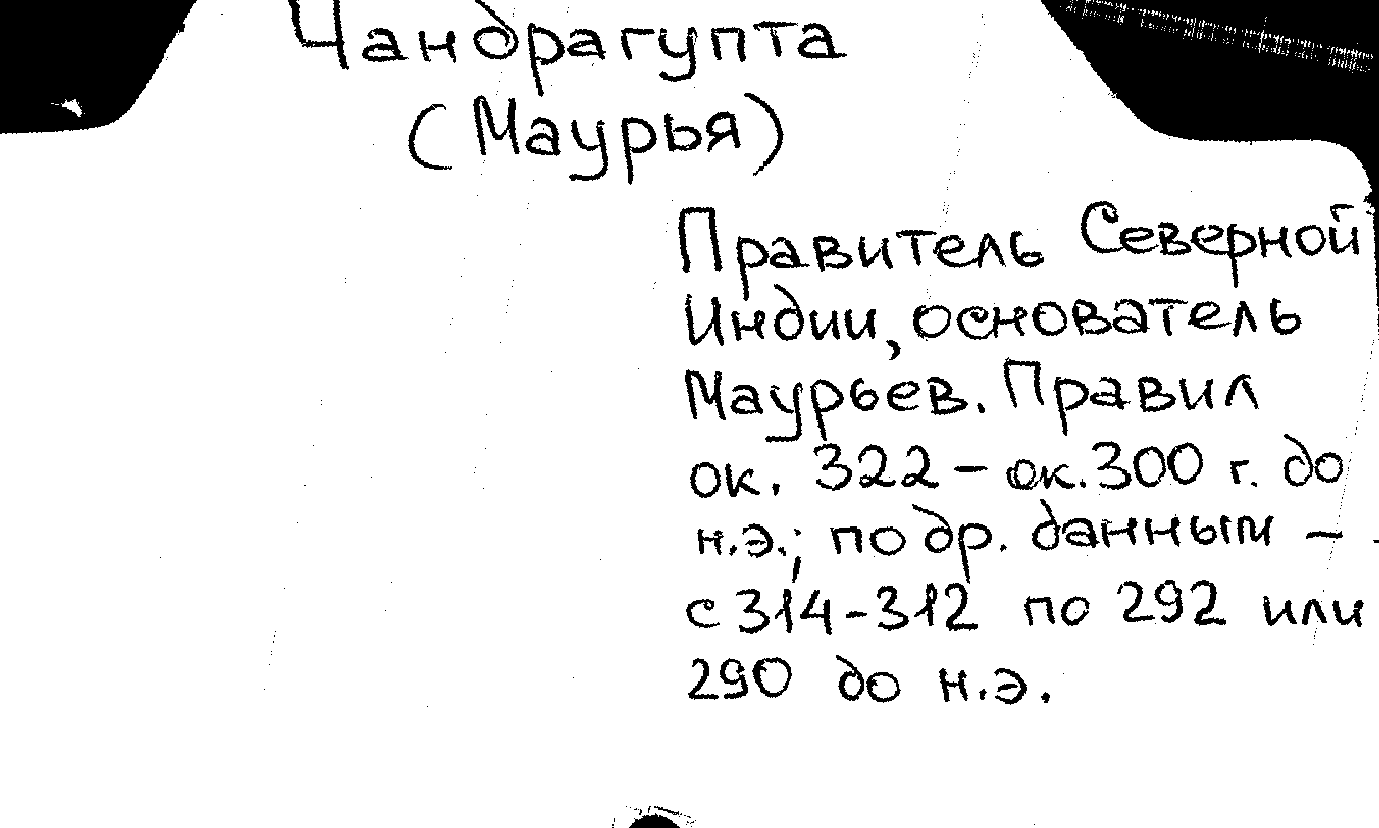 Чандрагупта
(Маурья)
Правитель Северной
Индии, основатель
Маурьев. Правил
ок. 322 – ок. 300 г. до
н.э.; по др. данным –
с 314-312 по 292 или
290 до н.э.